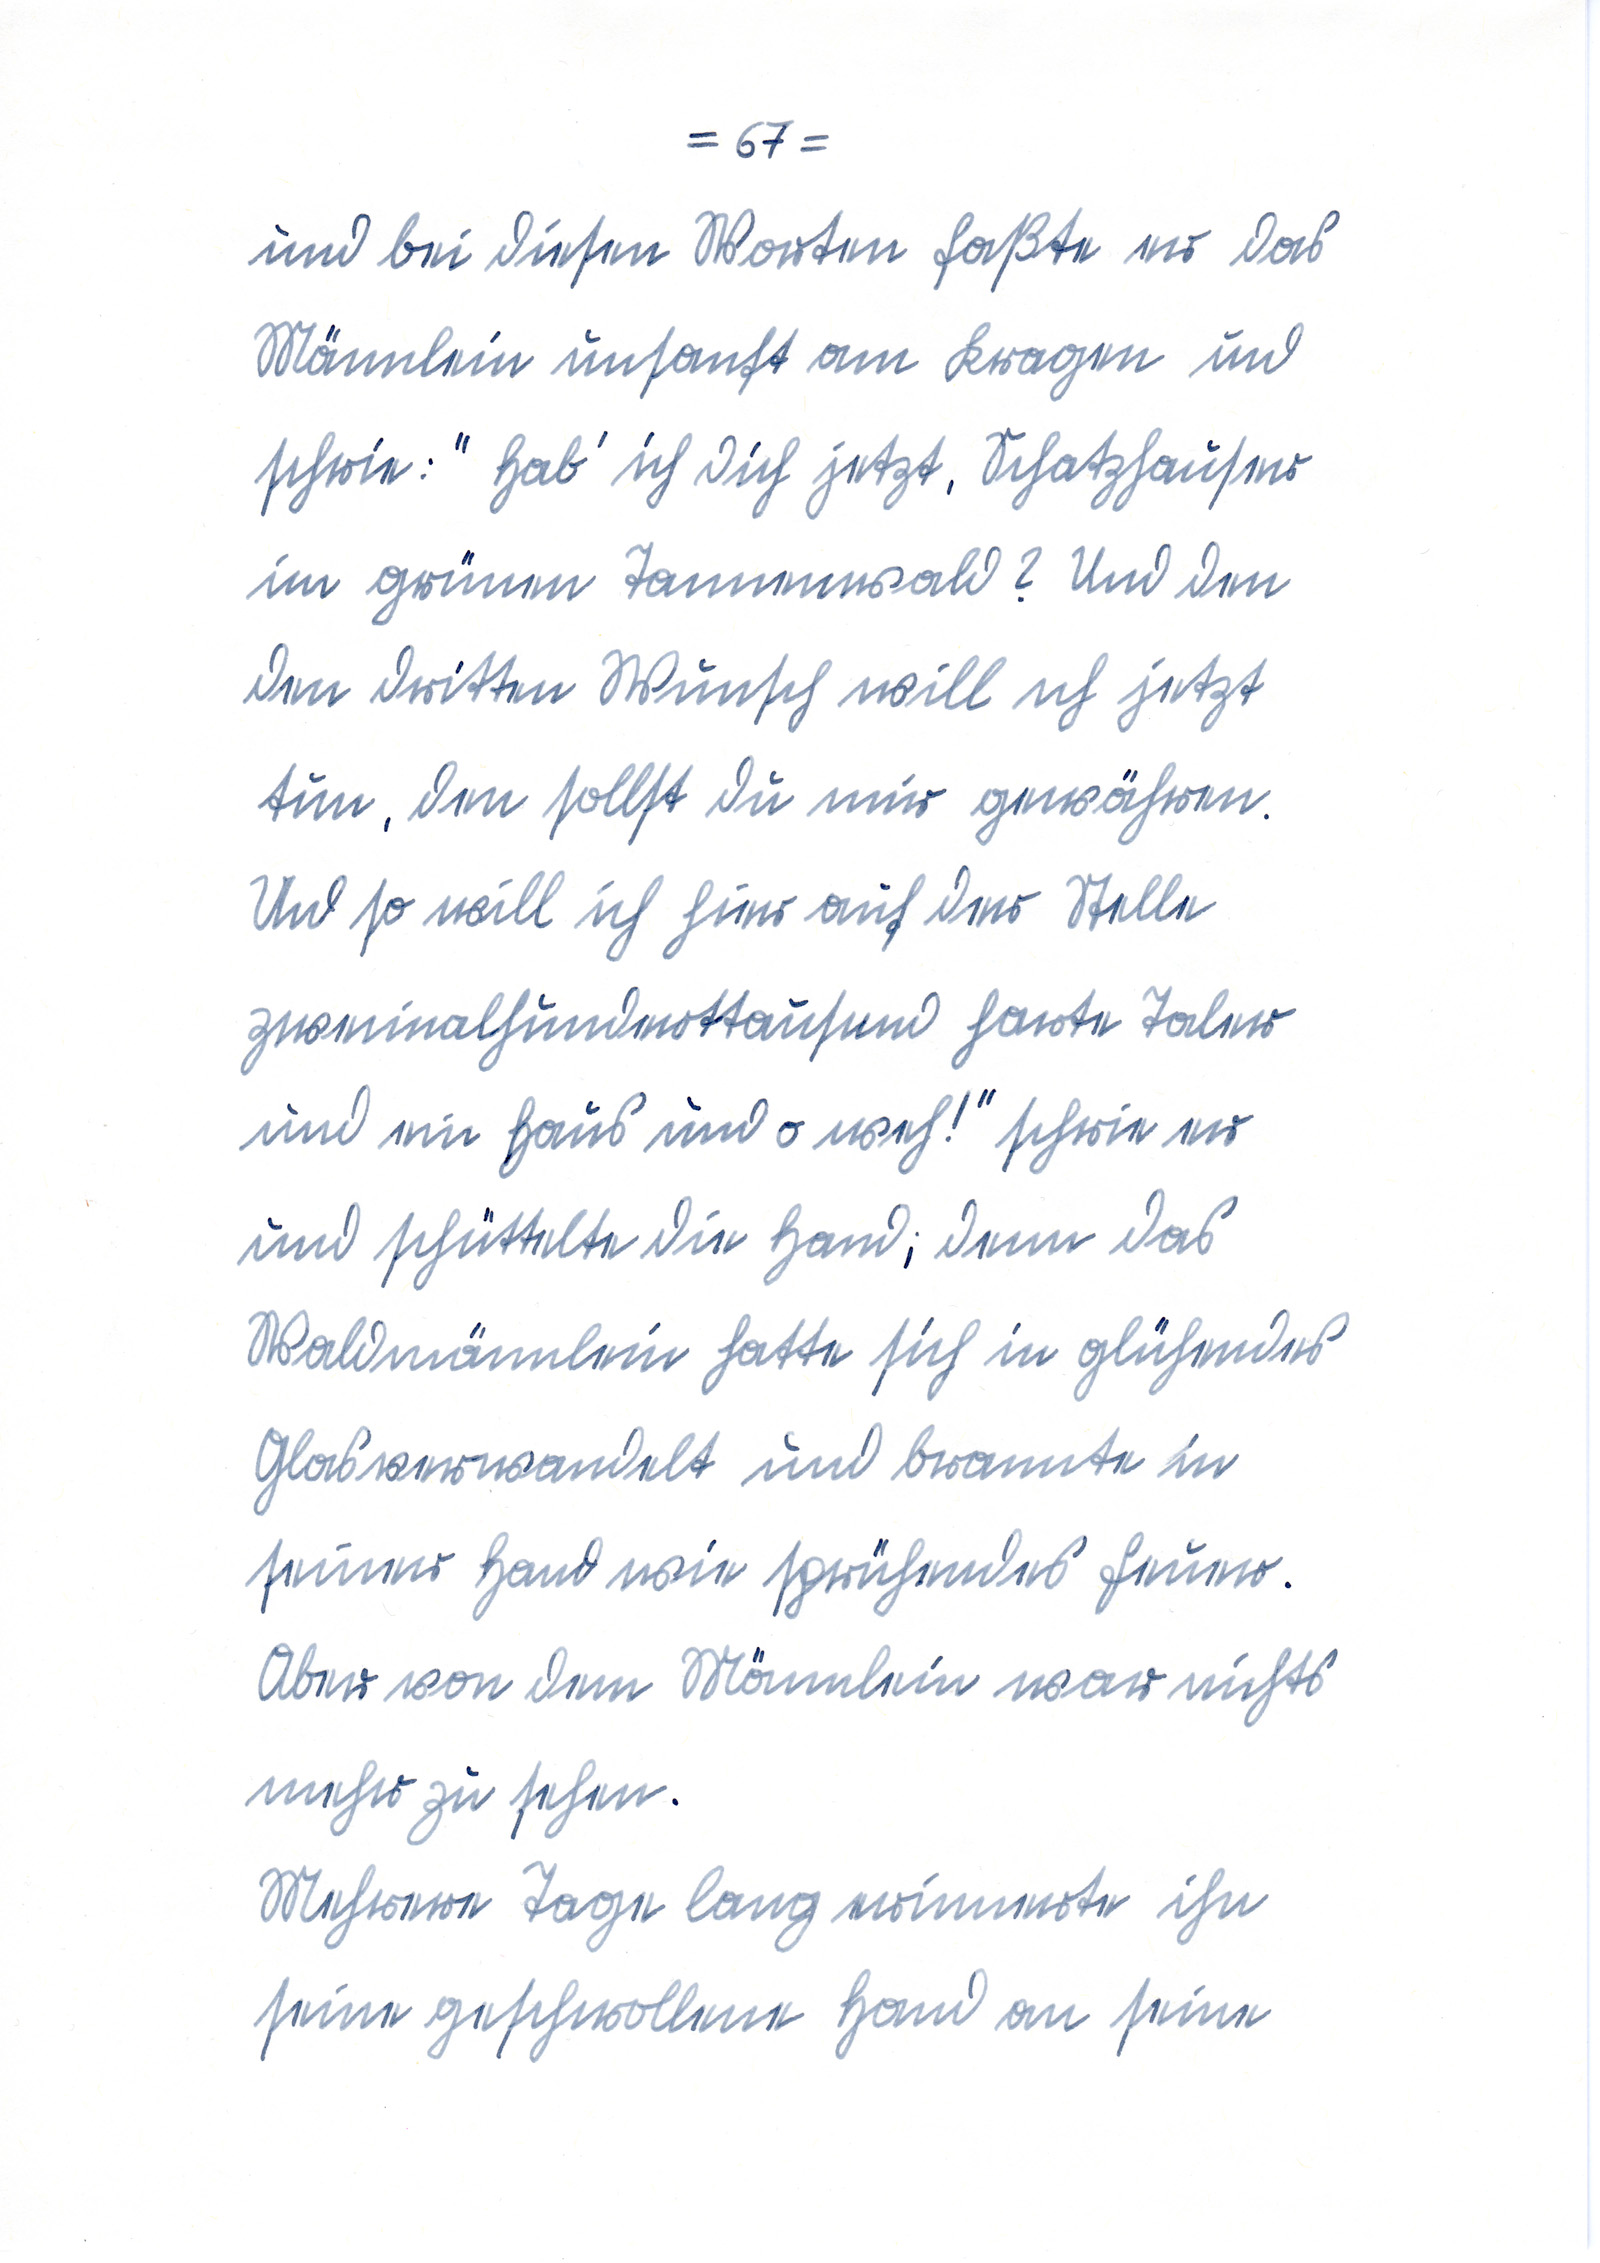 = 67 =
und bei diesen Worten faßte er das
Männlein unsanft am Kragen und
schrie: " Hab' ich dich jetzt, Schatzhauser
im grünen Tannenwald? Und den
den dritten Wunsch will ich jetzt
tun, den sollst du mir gewähren.
Und so will ich hier auf der Stelle
zweimalhunderttausend harte Taler
und ein Haus und o weh!" schrie er
und schüttelte die Hand; denn das
Waldmännlein hatte sich in glühendes
Glas verwandelt und brannte in
seiner Hand wie sprühendes Feuer.
Aber von dem Männlein war nichts
mehr zu sehen.
Mehrere Tage lang erinnerte ihn
seine geschwollene Hand an seine